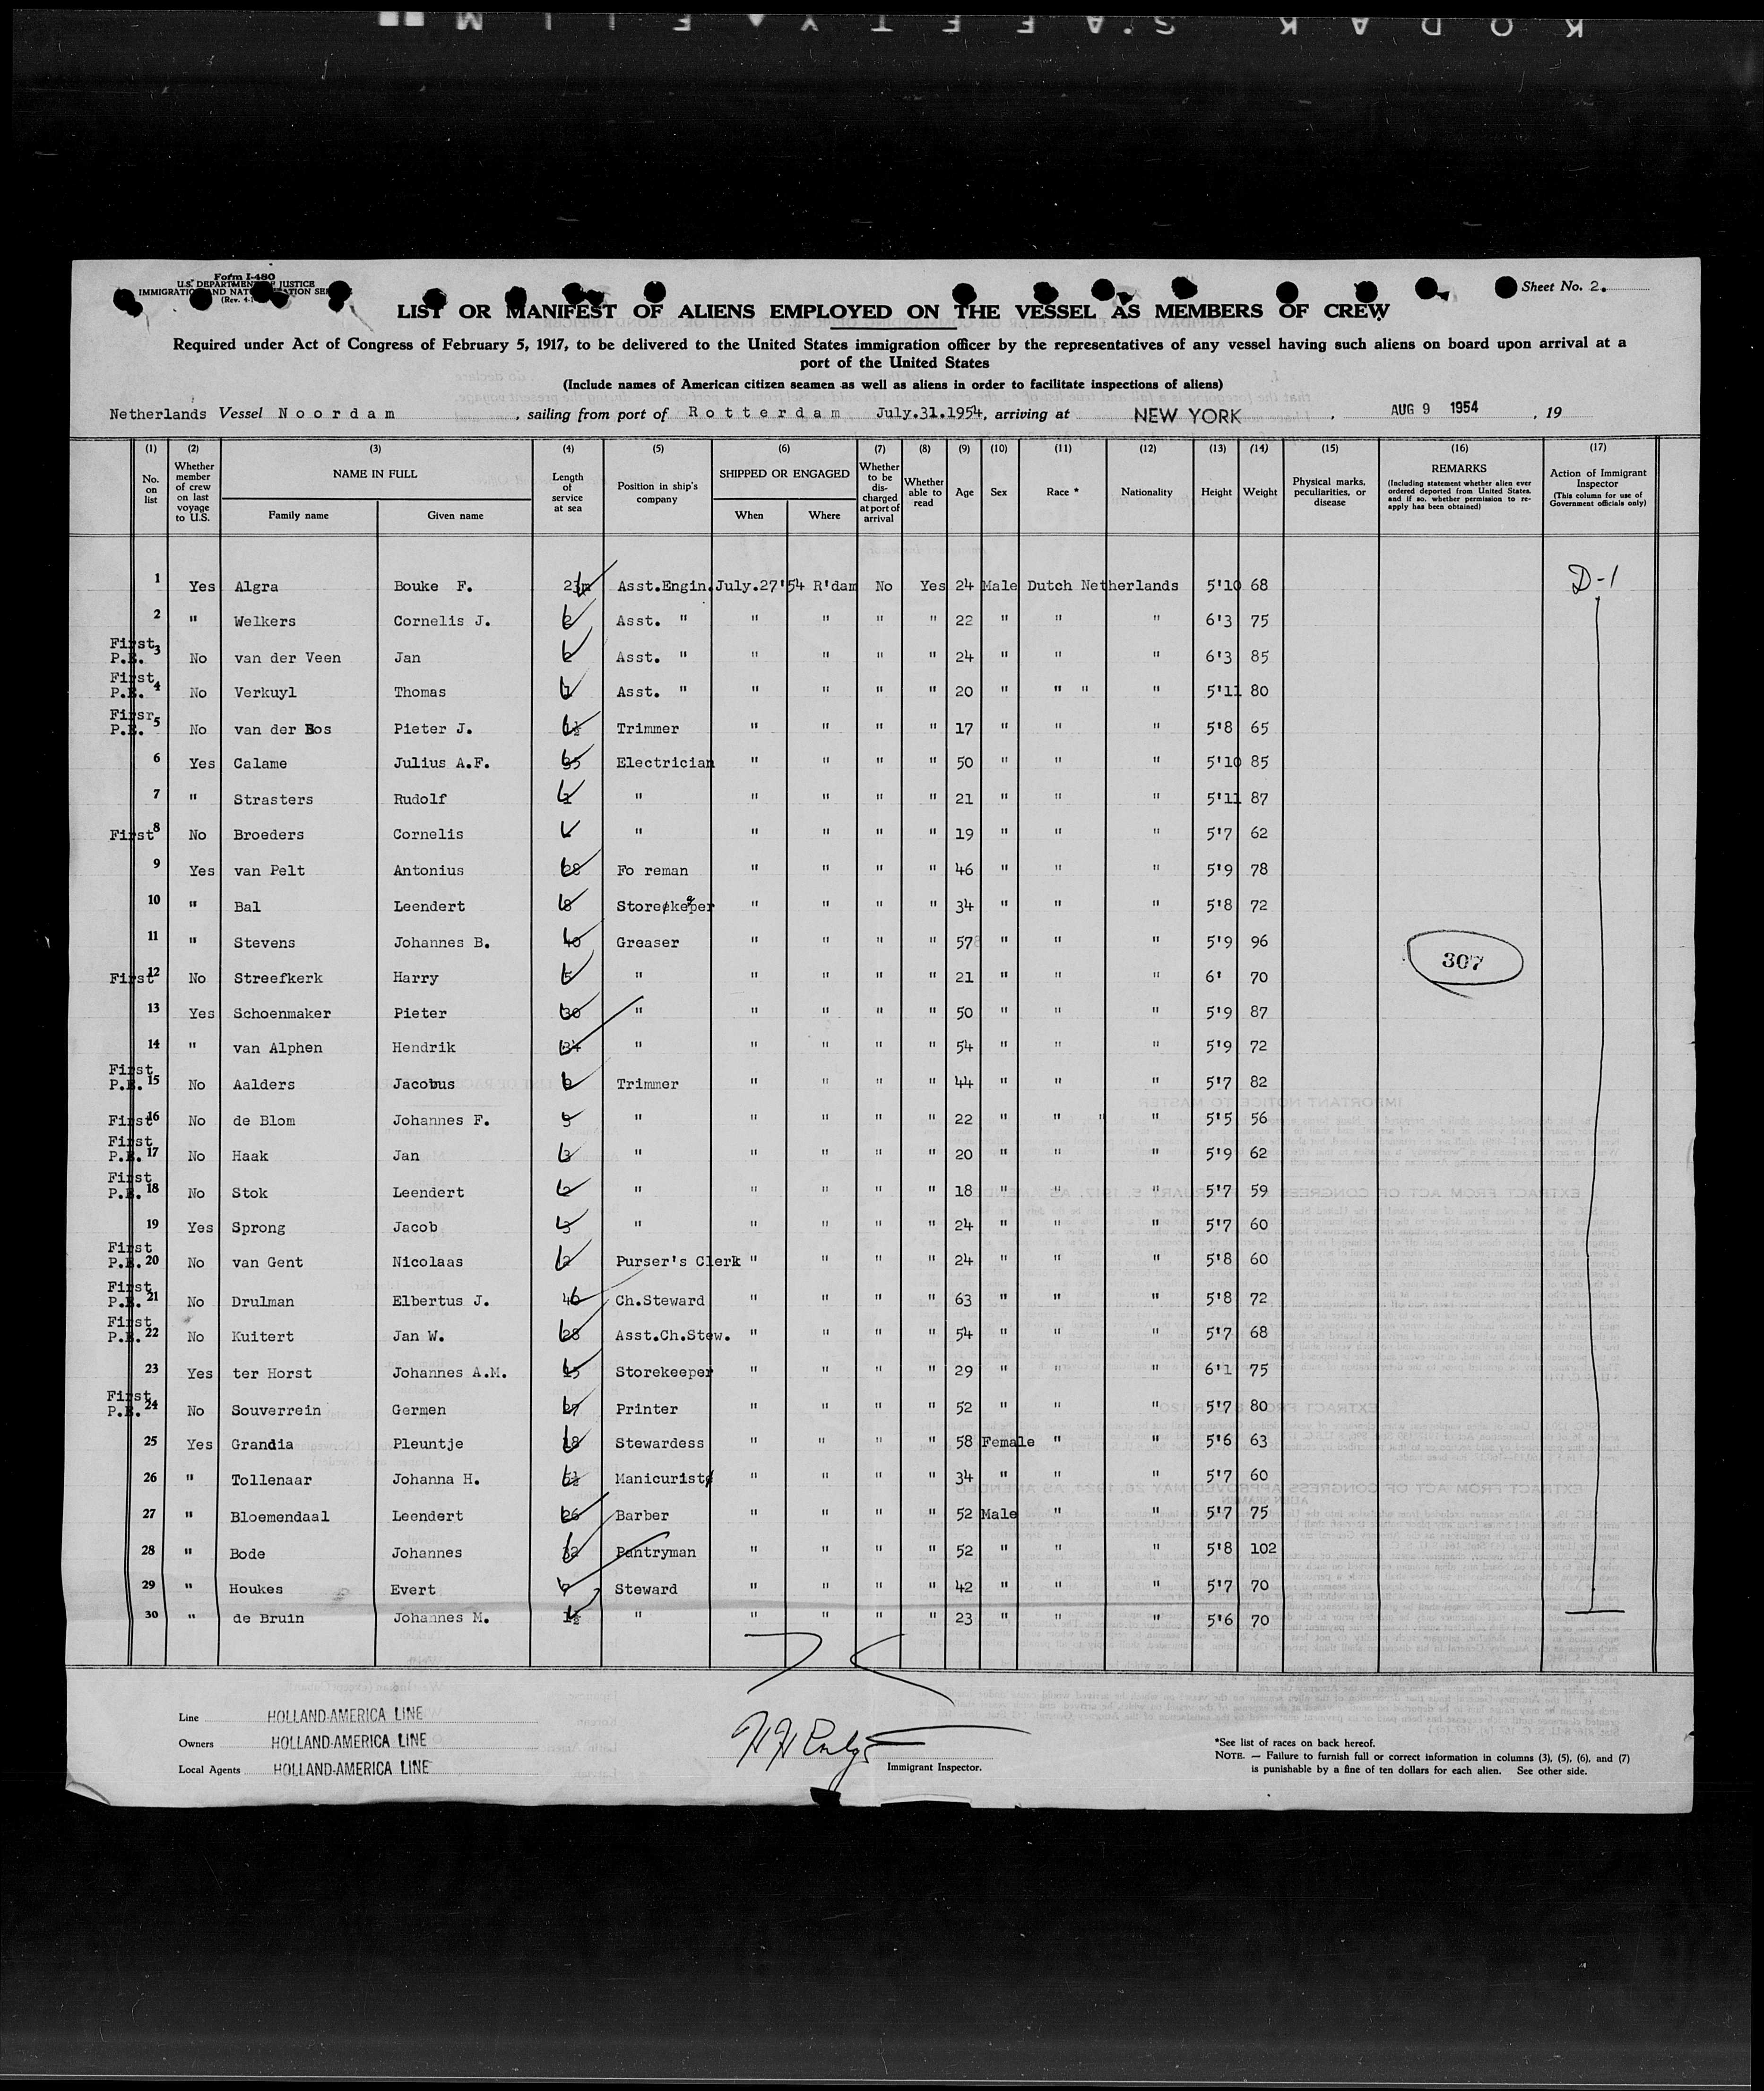 KODAK SAFETY FILM
Form I-480
U.S. DEPARTMENT OF JUSTICE
IMMIGRATION AND NATURALIZATION SERVICE
Sheet No. 2.
LIST OR MANIFEST OF ALIENS EMPLOYED ON THE VESSEL AS MEMBERS OF CREW
Required under Act of Congress of February 5, 1917, to be delivered to the United States immigration officer by the representatives of any vessel having such aliens on board upon arrival at a
port of the United States
(Include names of American citizen seamen as well as aliens in order to facilitate inspections of aliens)
Netherlands Vessel Noordam, sailing from port of Rotterdam July.31.1954, arriving at NEW YORK, AUG 9 1954, 19
(1) (2) (3) (4) (5) (6) (7) (8) (9) (10) (11) (12) (13) (14) (15) (16) (17)
No. on list Whether member of crew on last voyage to U.S. NAME IN FULL Family name Given name Length of service at sea Position in ship's company SHIPPED OR ENGAGED When Where Whether to be discharged at port of arrival Whether able to read Age Sex Race * Nationality Height Weight Physical marks, peculiarities, or disease REMARKS (Including statement whether alien ever ordered deported from United States, and if so, whether permission to reapply has been obtained) Action of Immigrant Inspector (This column for use of Government officials only)
1 Yes Algra Bouke F. Asst.Engin. July.27'54 R'dam No Yes 24 Male Dutch Netherlands 5'10 68 D-1
2 " Welkers Cornelis J. 2 Asst. " " " " " 22 " " " 6'3 75
First P.E. 3 No van der Veen Jan 2 Asst. " " " " " 24 " " " 6'3 85
First P.E. 4 No Verkuyl Thomas 1 Asst. " " " " " 20 " " " " 5'11 80
Firsr P.E. 5 No van der Bos Pieter J. 1½ Trimmer " " " " 17 " " " 5'8 65
6 Yes Calame Julius A.F. 35 Electrician " " " " 50 " " " 5'10 85
7 " Strasters Rudolf 1 " " " " " 21 " " " 5'11 87
First 8 No Broeders Cornelis " " " " " 19 " " " 5'7 62
9 Yes van Pelt Antonius 28 Fo reman " " " " 46 " " " 5'9 78
10 " Bal Leendert 8 Storekeeper " " " " 34 " " " 5'8 72
11 " Stevens Johannes B. 40 Greaser " " " " 57 " " " 5'9 96
307
First 12 No Streefkerk Harry 5 " " " " " 21 " " " 6' 70
13 Yes Schoenmaker Pieter 30 " " " " " 50 " " " 5'9 87
14 " van Alphen Hendrik 34 " " " " " 54 " " " 5'9 72
First P.E. 15 No Aalders Jacobus Trimmer " " " " 44 " " " 5'7 82
First 16 No de Blom Johannes F. " " " " " 22 " " " " 5'5 56
First P.E. 17 No Haak Jan 3 " " " " " 20 " " " 5'9 62
First P.E. 18 No Stok Leendert 2 " " " " " 18 " " " 5'7 59
19 Yes Sprong Jacob 3 " " " " " 24 " " " 5'7 60
First P.E. 20 No van Gent Nicolaas 2 Purser's Clerk " " " " 24 " " " 5'8 60
First P.E. 21 No Drulman Elbertus J. 46 Ch.Steward " " " " 63 " " " 5'8 72
First P.E. 22 No Kuitert Jan W. 28 Asst.Ch.Stew. " " " " 54 " " " 5'7 68
23 Yes ter Horst Johannes A.M. 15 Storekeeper " " " " 29 " " " 6'1 75
First P.E. 24 No Souverrein Germen 27 Printer " " " " 52 " " " 5'7 80
25 Yes Grandia Pleuntje 18 Stewardess " " " " 58 Female " " 5'6 63
26 " Tollenaar Johanna H. Manicurist " " " " 34 " " " 5'7 60
27 " Bloemendaal Leendert 26 Barber " " " " 52 Male " " 5'7 75
28 " Bode Johannes 32 Pantryman " " " " 52 " " " 5'8 102
29 " Houkes Evert 7 Steward " " " " 42 " " " 5'7 70
30 " de Bruin Johannes M. 1½ " " " " " 23 " " " 5'6 70
Line HOLLAND-AMERICA LINE
Owners HOLLAND-AMERICA LINE
Local Agents HOLLAND-AMERICA LINE
Immigrant Inspector.
*See list of races on back hereof.
NOTE. — Failure to furnish full or correct information in columns (3), (5), (6), and (7)
is punishable by a fine of ten dollars for each alien. See other side.